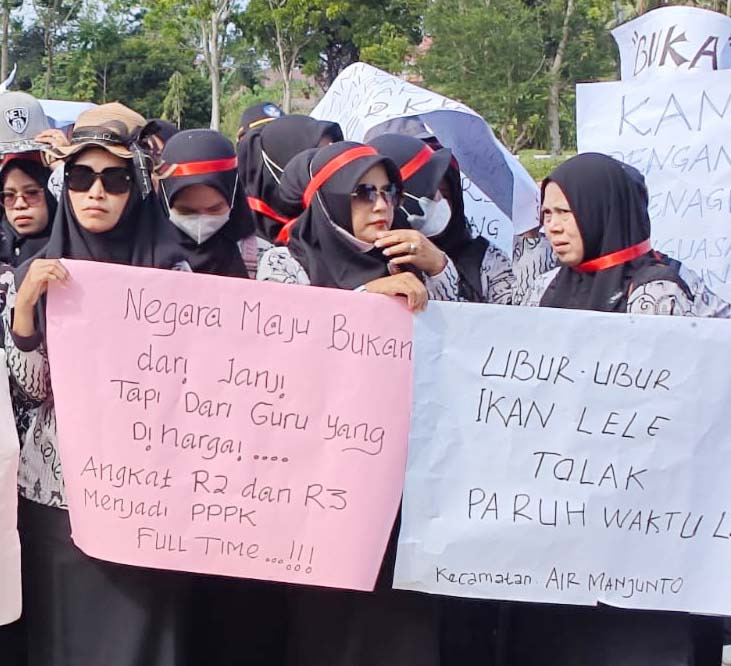 Negara Maju Bukan
dari Janji
Tapi Dari Guru yang
Dihargai....
Angkat R2 dan R3
Menjadi PPPK
FULL TIME...!!!
UBUR-UBUR
IKAN LELE
TOLAK
PARUH WAKTU L
Kecamatan. AIR MANJUNTO
"BUKA
KAM
DENGAN